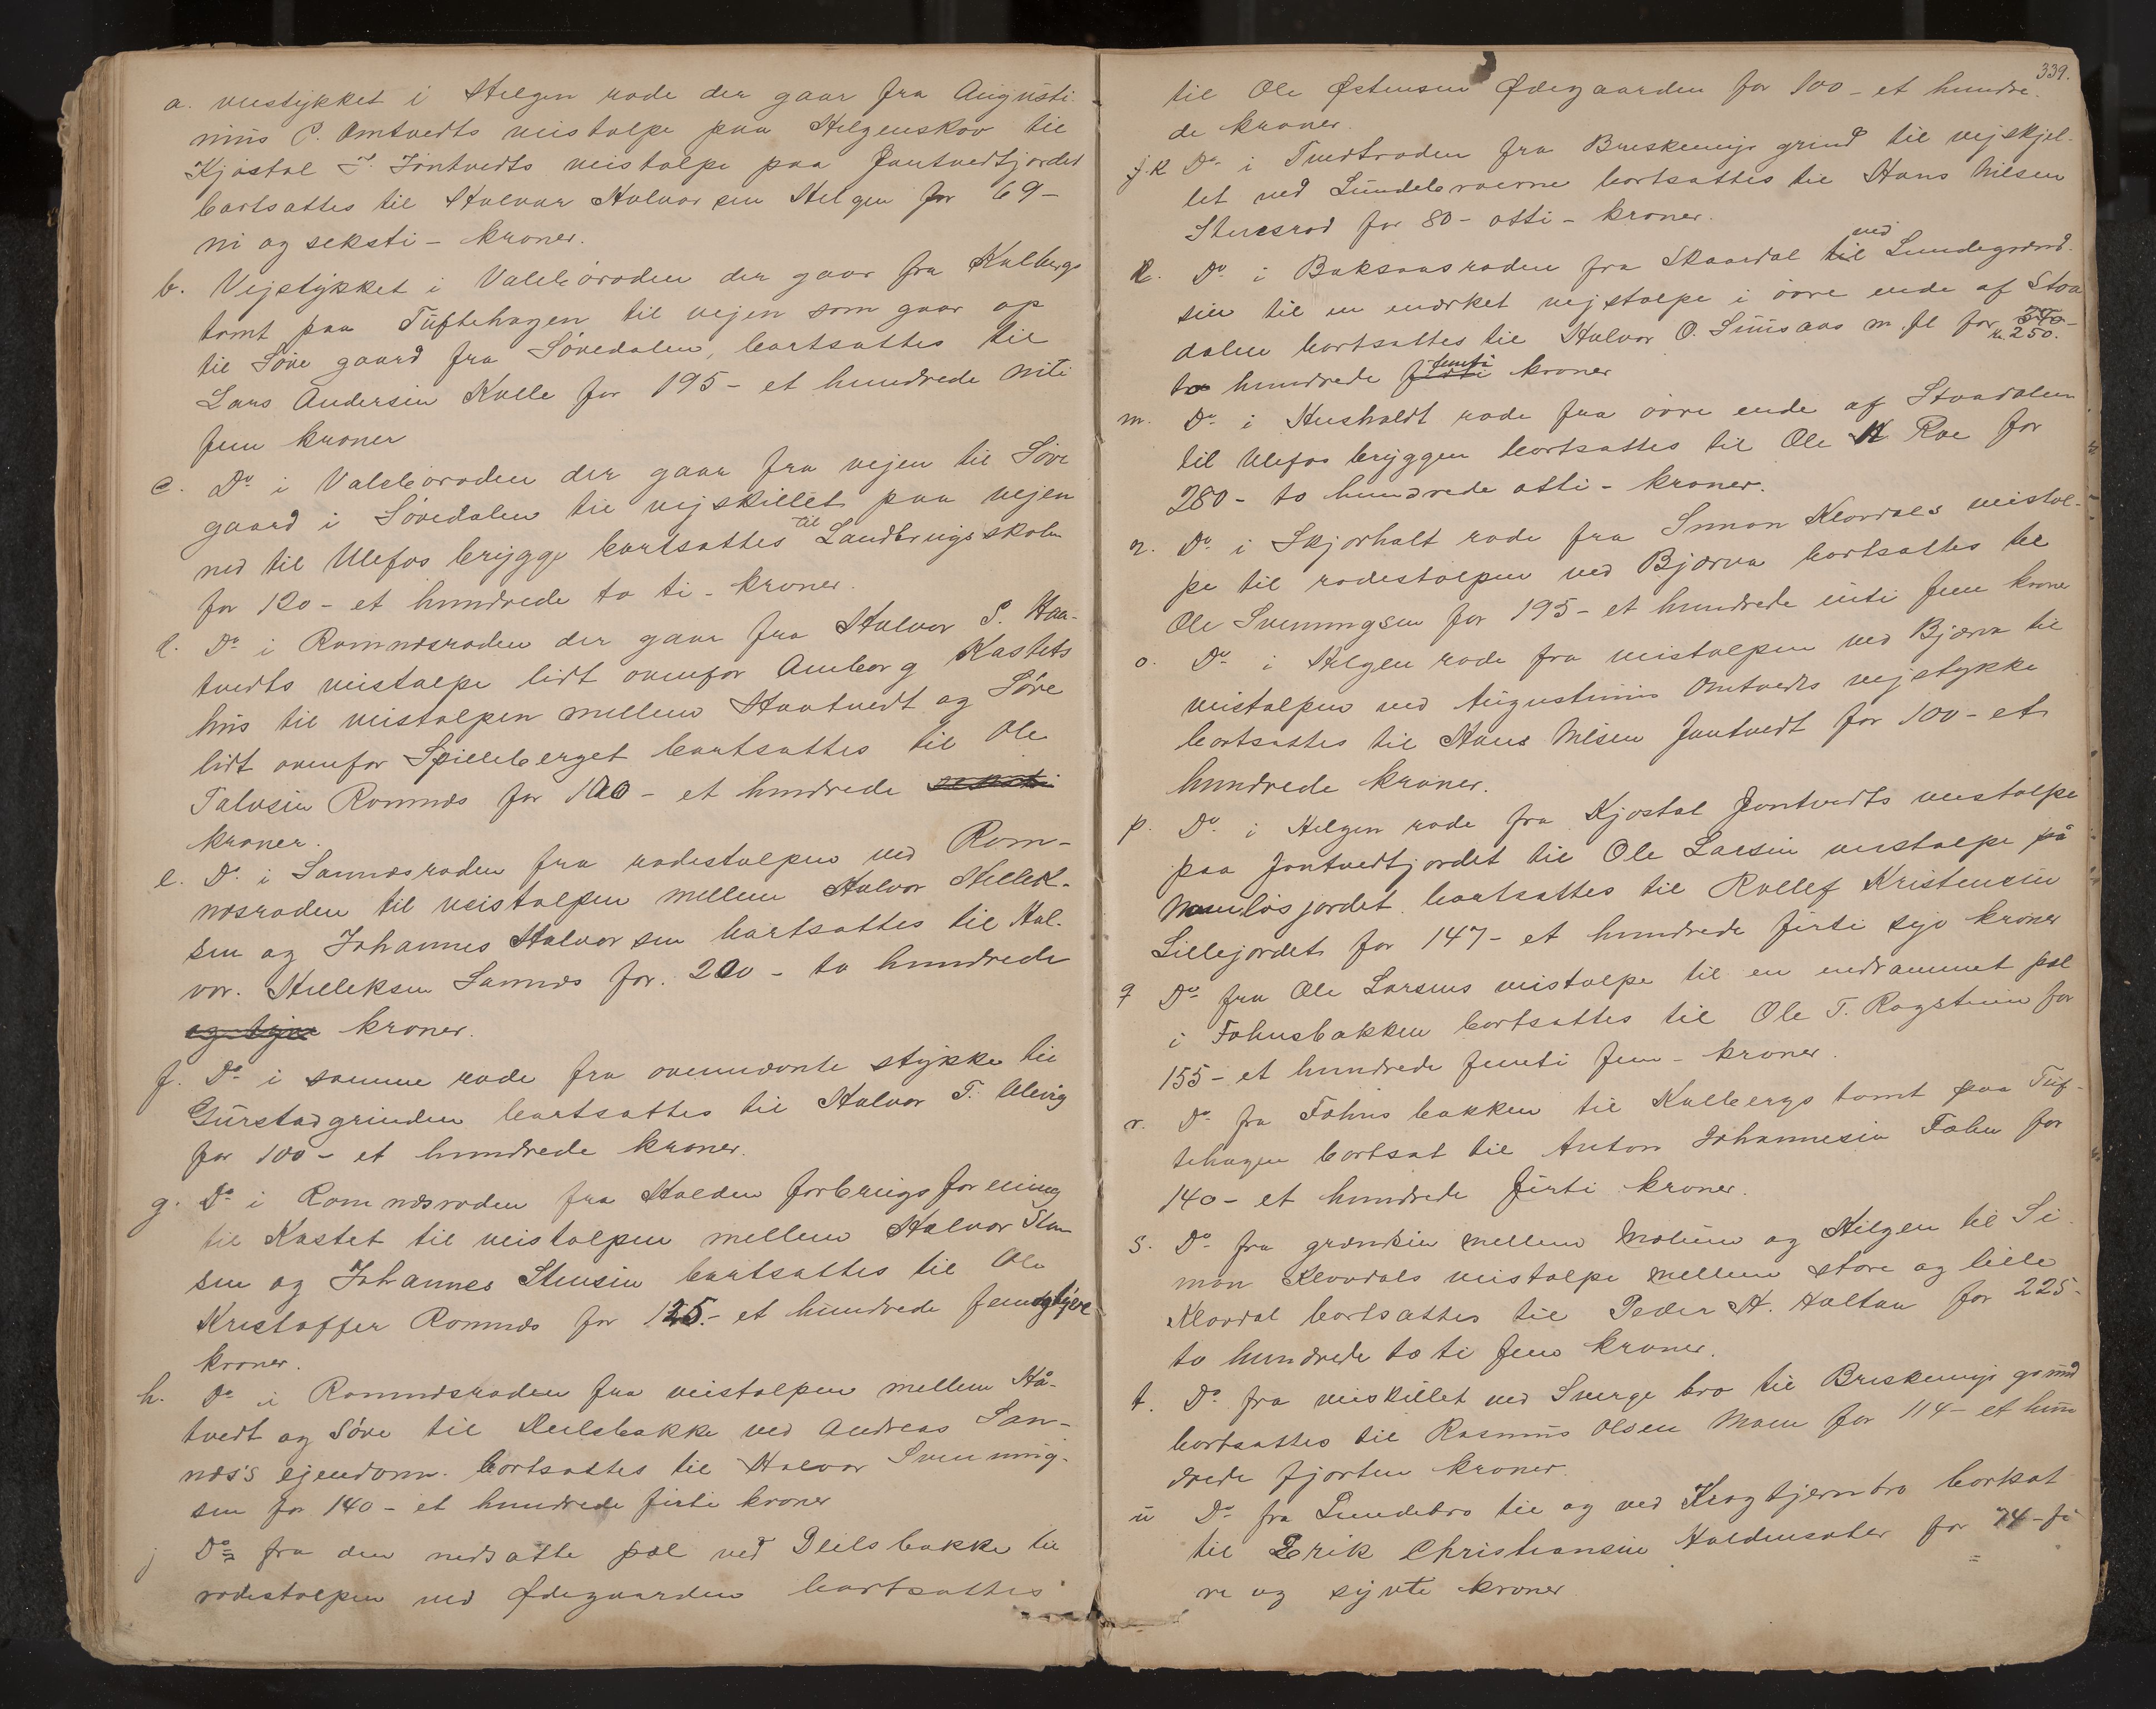 a. veistykket i Helgen rode der gaar fra Augusti
nus P. Omtvedts veistolpe paa Helgenskov til
Kjøstol T. Jöntvedts veistolpe paa Jontvedtjordet
bortsattes til Halvar Halvorsen Helgen for 69-
ni og seksti - kroner.
b. Vejstykket i Valeböroden der gaar fra Kulbergs
tomt paa Tüftehagen til vejen som gaar op
til Söve gaard fra Sövedalen, bortsattes til
Lars Andersen Kolle for 195- et hundrede niti
fem kroner
c. Do i Valeböroden der gaar fra vejen til Söve
gaard i Sövedalen til vejskillet paa vejen
ned til Ulefos brygge bortsattes til Landbrugsskolen
for 120- et hundrede to ti - kroner.
d. Do i Romnæsroden der gaar fra Halvor S. Haa-
tvedts veistolpe lidt ovenfor Amborg Kastets
hus til veistolpen mellem Haatvedt og Söve
lidt ovenfor Spilleberget bortsattes til Ole
Talvsen Romnæs for 100- et hundrede seksti
kroner.
e. Do i Sannæsroden fra rodestolpen ved Rom-
næsroden til veistolpen mellem Halvor Hellek-
sen og Johannes Halvorsen bortsattes til Hal-
vor. Helleksen Sannæs for. 200 - to hundrede
og tyve kroner.
f. Do i samme rode fra ovennævnte stykke til
Gurstadgrinden bortsattes til Halvor T. Ulevig
for 100- et hundrede kroner.
g. Do i Romnæsroden fra Holden forbrugsforening
til Kastet til veistolpen mellem Halvor Sten
sen og Johannes Stensen bortsattes til Ole
Kristoffer Romnæs for 125.- et hundrede femogtyve
kroner.
h. Do i Romnæsroden fra veistolpen mellem Hå-
tvedt og Söve til Deilsbakke ved Andreas San-
næs's ejendom. bortsattes til Halvor Svennüng-
sen for 140- et hundrede firti kroner
j Do fra den nedsatte pæl ved Deilsbakke til
rodestolpen ved Ødegaarden bortsattes
339.
til Ole Østensen Ødegaarden for 100- et hundre-
de kroner.
j.k Do i Tvedtroden fra Breskemyr grind til vejskjel-
let ved Lundebroerne bortsattes til Hans Nilsen
Stensrod for 80- otti - kroner.
l. Do i Baksaasroden fra Skaardal til ved Lundegrænd-
sen til en mærket vejstolpe i övre ende af Stoa
dalen bortsattes til Halvor O. Smisaas m. fl for 240- kr. 250.
to hundrede firti femti kroner
m. Do i Hesholdt rode fra övre ende af Stoadalen
til Ulefos bryggen bortsattes til Ole H Roe for
280- to hundrede otti - kroner.
n. Do i Skjorholt rode fra Simon Klovdals veistol-
pe til rodestolpen ved Bjærva bortsattes til
Ole Svenningsen for 195- et hundrede niti fem kroner
o. Do i Helgen rode fra veistolpen ved Bjærva til
veistolpen ved Augustinus Omtvedts vejstykke
bortsattes til Hans Nilsen Jontvedt for 100- et
hundrede kroner.
p. Do i Helgen rode fra Kjøstol Jontvedts veistolpe
paa Jontvedtjordet til Ole Larsen veistolpe på
Namlösjordet bortsattes til Rollef Kristensen
Lillejordet for 147- et hundrede firti syv kroner
q Do fra Ole Larsens veistolpe til en nedrammet pæl
i Fohnsbakken bortsattes til Ole T. Ragstein for
155- et hundrede femti fem - kroner.
r. Do fra Fohns bakken til Kulbergs tomt paa Tüf-
tehagen bortsat til Anton Johannesen Fohn for
140- et hundrede firti kroner.
s. Do fra grændsen mellem Molum og Helgen til Si
mon Klovdals veistolpe mellem store og lille
Klovdal bortsattes til Peder H. Holtan for 225-
to hundrede to ti fem kroner.
t. Do fra veiskillet ved Sverge bro til Breskemyr grind
bortsattes til Rasmus Olsen Moen for 114- et hun
drede fjorten kroner.
u Do fra Lundebro til og ved Krogtjernbro bortsat
til Erik Christiansen Holdensæter for 74- fi
re og sytti kroner